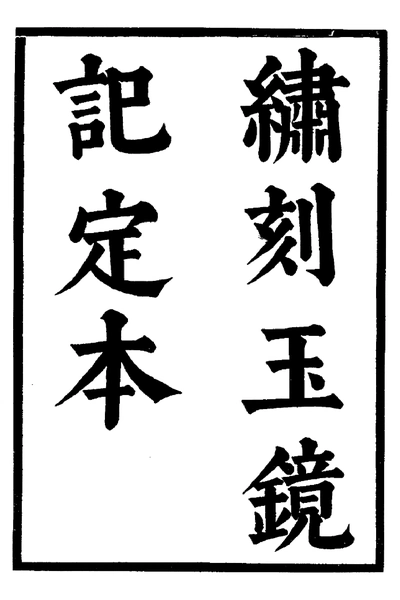 繡刻玉鏡
記定本